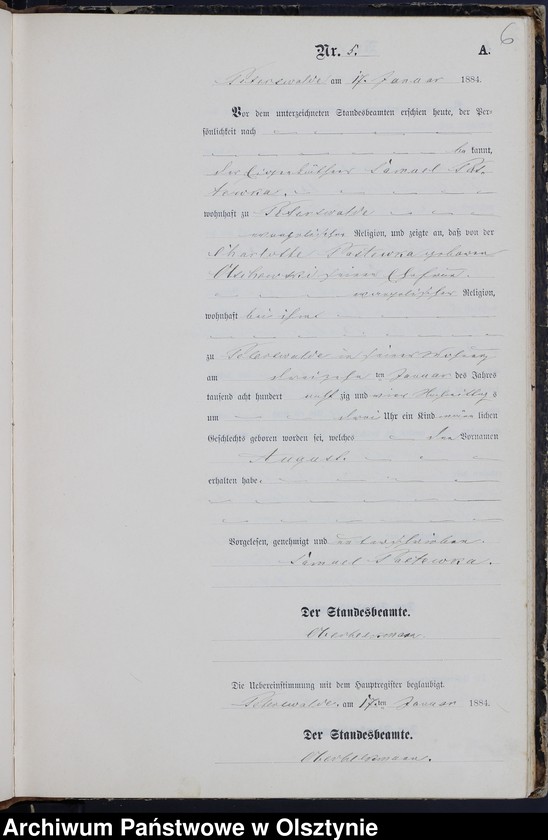 6
Nr. 5. A.
Peterswalde am 17. Januar 1884.
Vor dem unterzeichneten Standesbeamten erschien heute, der Per-
sönlichkeit nach
be kannt,
der Eigenkäthner Samuel
wohnhaft zu Peterswalde
evangelischer Religion, und zeigte an, daß von der
Charlotte geborene
seiner Ehefrau
evangelischer Religion,
wohnhaft bei ihm
zu Peterswalde in seiner Wohnung
am dreizehn ten Januar des Jahres
tausend acht hundert acht zig und vier Nachmittags
um drei Uhr ein Kind männ lichen
Geschlechts geboren worden sei, welches den Vornamen
August
erhalten habe.
Vorgelesen, genehmigt und unterschrieben.
Samuel
Der Standesbeamte.
Die Uebereinstimmung mit dem Hauptregister beglaubigt.
Peterswalde, am 17ten Januar 1884.
Der Standesbeamte.
Archiwum Państwowe w Olsztynie